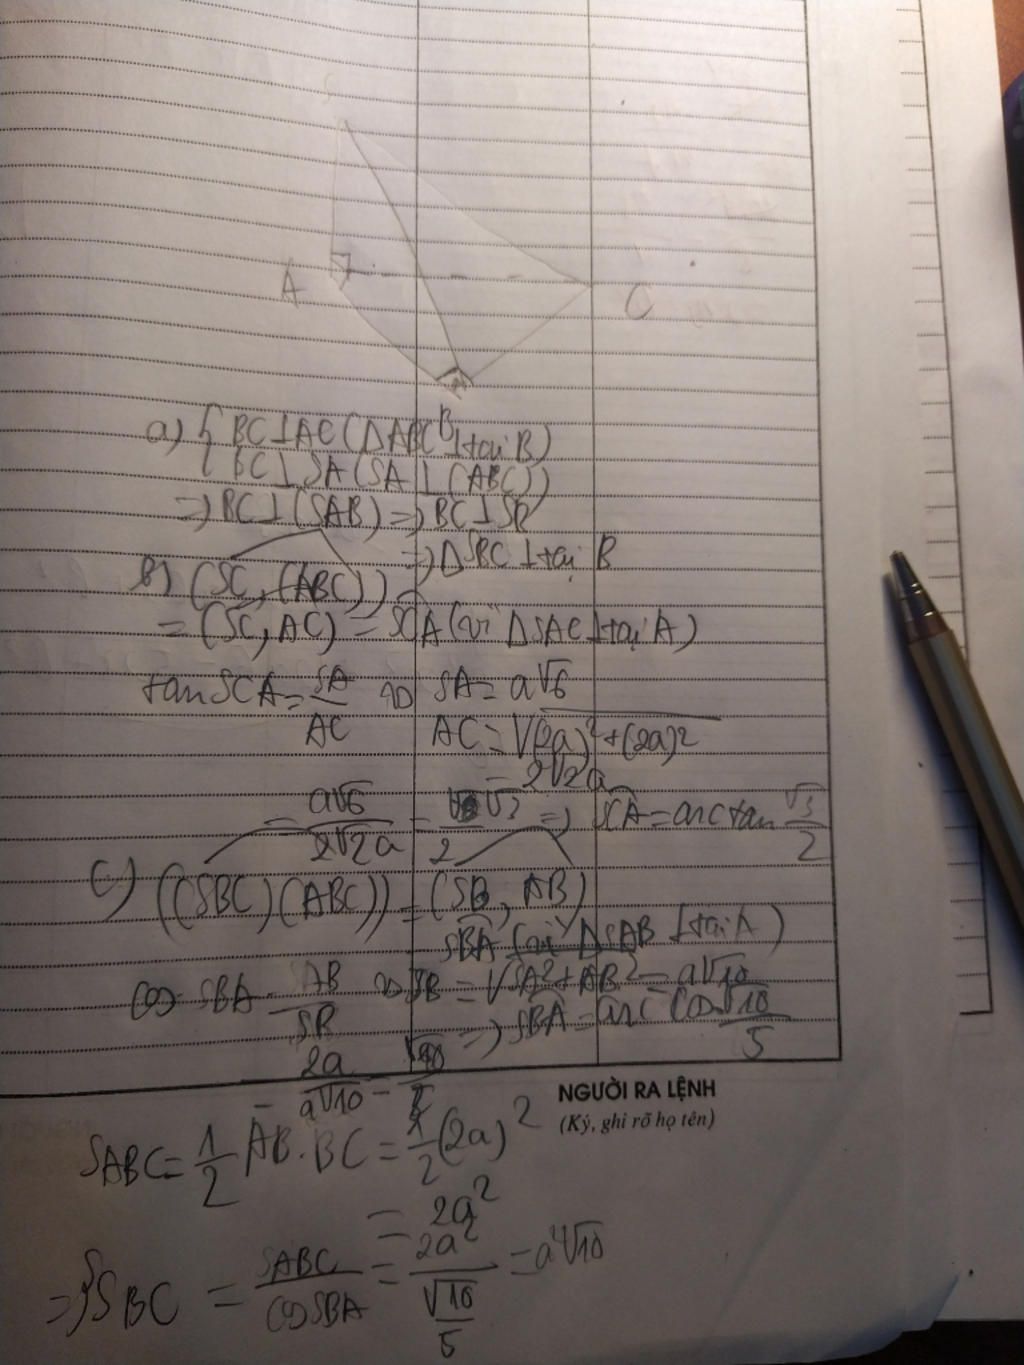 A
C
B
a) { BC⊥AC (ΔABC ⊥ tại B)
BC⊥SA (SA⊥(ABC))
=> BC⊥(SAB) => BC⊥SB
=> ΔSBC ⊥ tại B
b) (SC, (ABC))
= (SC, AC) = SCA (vì ΔSAC ⊥ tại A)
tan SCA = SA/AC SA = a√6
AC = √(2a)²+(2a)²
= 2√2a
= a√6/2√2a = √3/2 => SCA = arc tan √3/2
c) ((SBC)(ABC)) = (SB, AB)
SBA (vì ΔSAB ⊥ tại A)
cos SBA = AB/SB SB = √SA²+AB² = a√10
= 2a/a√10 = √10/5 => SBA = arc cos √10/5
NGƯỜI RA LỆNH
(Ký, ghi rõ họ tên)
SABC = 1/2 AB.BC = 1/2 (2a)²
= 2a²
=> SSBC = SABC/cos SBA = 2a²/(√10/5) = a²√10